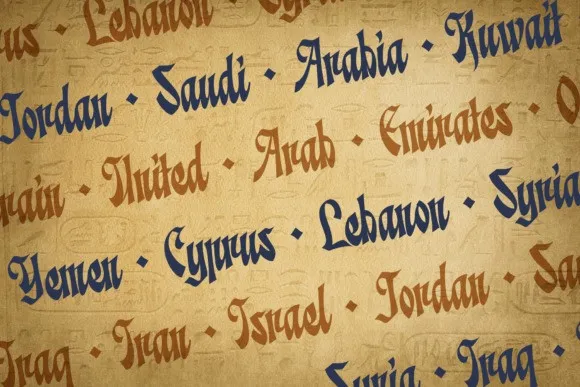 rus · Lebanon · Cyprus
Jordan · Saudi · Arabia · Kuwait
rain · United · Arab · Emirates · O
Yemen · Cyprus · Lebanon · Syria
Iraq · Iran · Israel · Jordan · Sau
Syria · Iraq ·